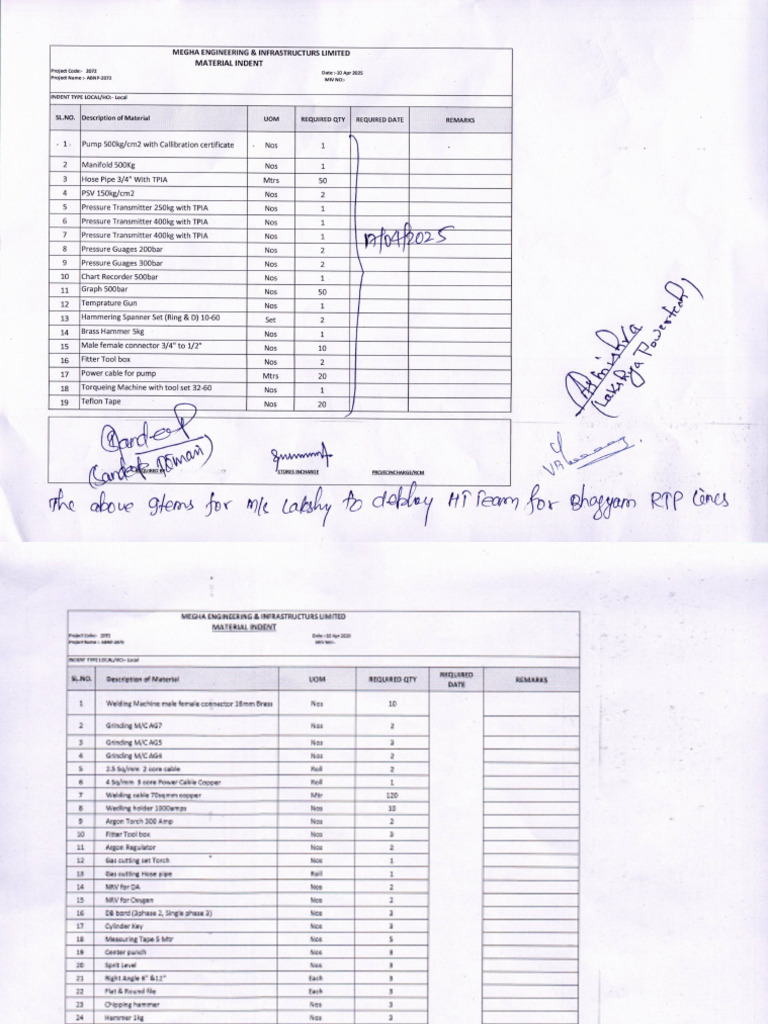 MEGHA ENGINEERING & INFRASTRUCTURS LIMITED
MATERIAL INDENT
Project Code:- 2072 Date :-10 Apr 2025
Project Name :- ABNP-2072 MIV NO:-
INDENT TYPE LOCAL/HO:- Local
SL.NO. Description of Material UOM REQUIRED QTY REQUIRED DATE REMARKS
1 Pump 500kg/cm2 with Callibration certificate Nos 1
2 Manifold 500Kg Nos 1
3 Hose Pipe 3/4" With TPIA Mtrs 50
4 PSV 150kg/cm2 Nos 2
5 Pressure Transmitter 250kg with TPIA Nos 1
6 Pressure Transmitter 400kg with TPIA Nos 1
7 Pressure Transmitter 400kg with TPIA Nos 1
17/04/2025
8 Pressure Guages 200bar Nos 2
9 Pressure Guages 300bar Nos 2
10 Chart Recorder 500bar Nos 1
11 Graph 500bar Nos 50
12 Temprature Gun Nos 1
13 Hammering Spanner Set (Ring & D) 10-60 Set 2
14 Brass Hammer 5kg Nos 1
15 Male female connector 3/4" to 1/2" Nos 10
16 Fitter Tool box Nos 2
17 Power cable for pump Mtrs 20
18 Torqueing Machine with tool set 32-60 Nos 1
19 Teflon Tape Nos 20
(Lakshya Powertech)
Sandeep
STORES INCHARGE PROJECTINCHARGE/RCM
The above Items for M/c Lakshy to deploy HT Team for Bhagyam RTP Lines
MEGHA ENGINEERING & INFRASTRUCTURS LIMITED
MATERIAL INDENT
Project Code:- 2072 Date :-10 Apr 2025
Project Name :- ABNP-2072 MIV NO:-
INDENT TYPE LOCAL/HO:- Local
SL.NO. Description of Material UOM REQUIRED QTY REQUIRED DATE REMARKS
1 Welding Machine male female connector 18mm Brass Nos 10
2 Grinding M/C AG7 Nos 2
3 Grinding M/C AG5 Nos 3
4 Grinding M/C AG4 Nos 2
5 2.5 Sq/mm 2 core cable Roll 2
6 4 Sq/mm 3 core Power Cable Copper Roll 1
7 Welding cable 70sqmm copper Mtr 120
8 Wedling holder 1000amps Nos 10
9 Argon Torch 300 Amp Nos 2
10 Fitter Tool box Nos 3
11 Argon Regulator Nos 2
12 Gas cutting set Torch Nos 1
13 Gas cutting Hose pipe Roll 1
14 NRV for DA Nos 2
15 NRV for Oxygen Nos 2
16 DB bord (3phase 2, Single phase 3) Nos 3
17 Cylinder Key Nos 3
18 Measuring Tape 5 Mtr Nos 5
19 Center punch Nos
20 Sprit Level Nos
21 Right Angle 6" &12" Each
22 Flat & Round file Each 3
23 Chipping hammer Nos 3
24 Hammer 1kg Nos 3